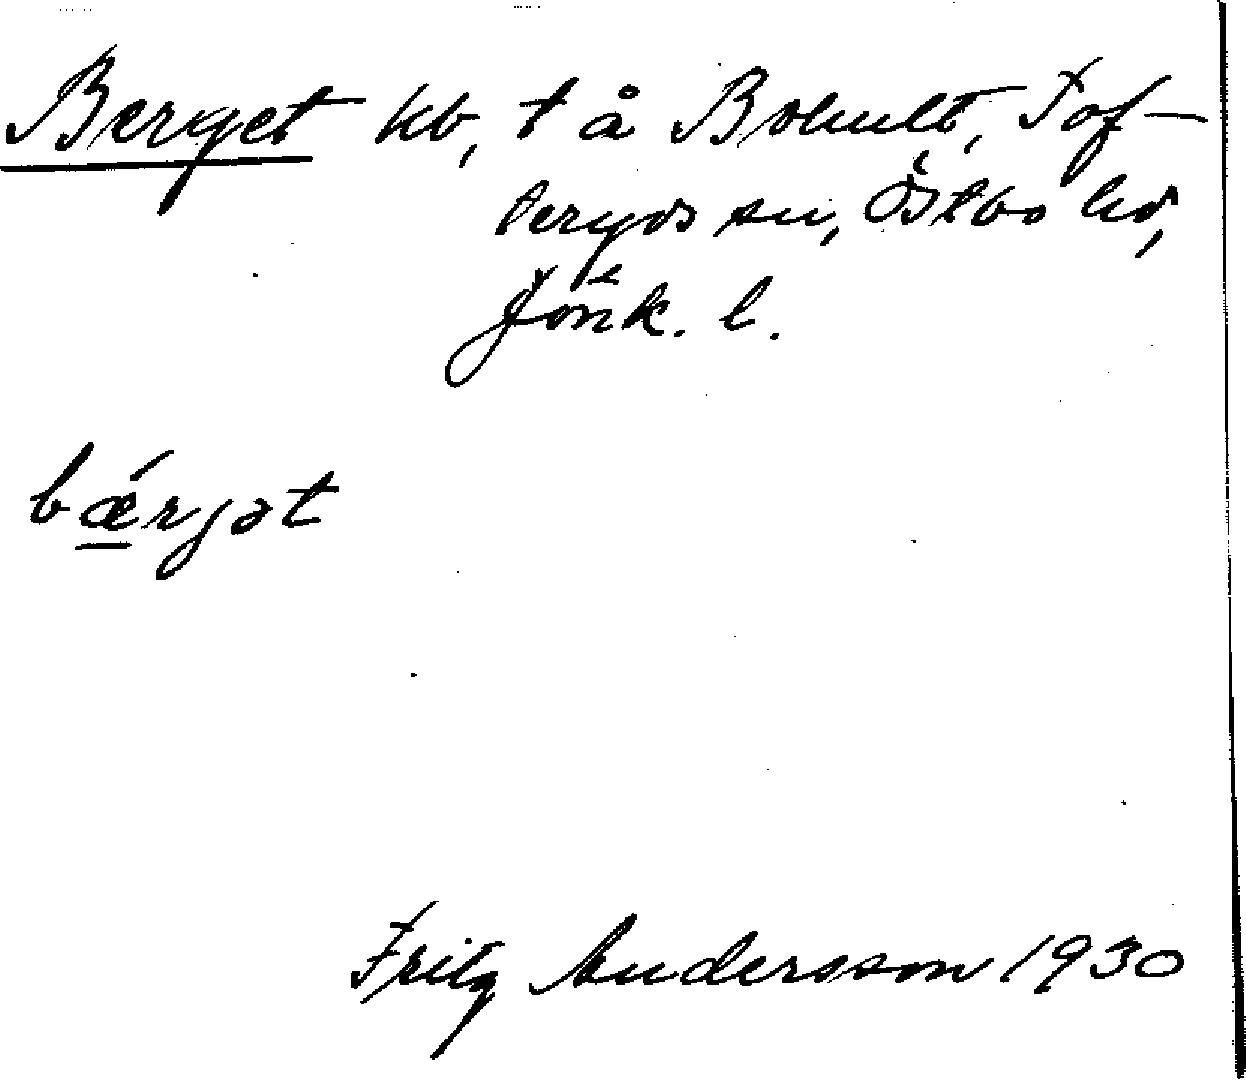 Berget kb, t å Bohult, Tof-
teryds sn, Östbo hd,
Jönk. l.
bǽrjət
Fritz Andersson 1930